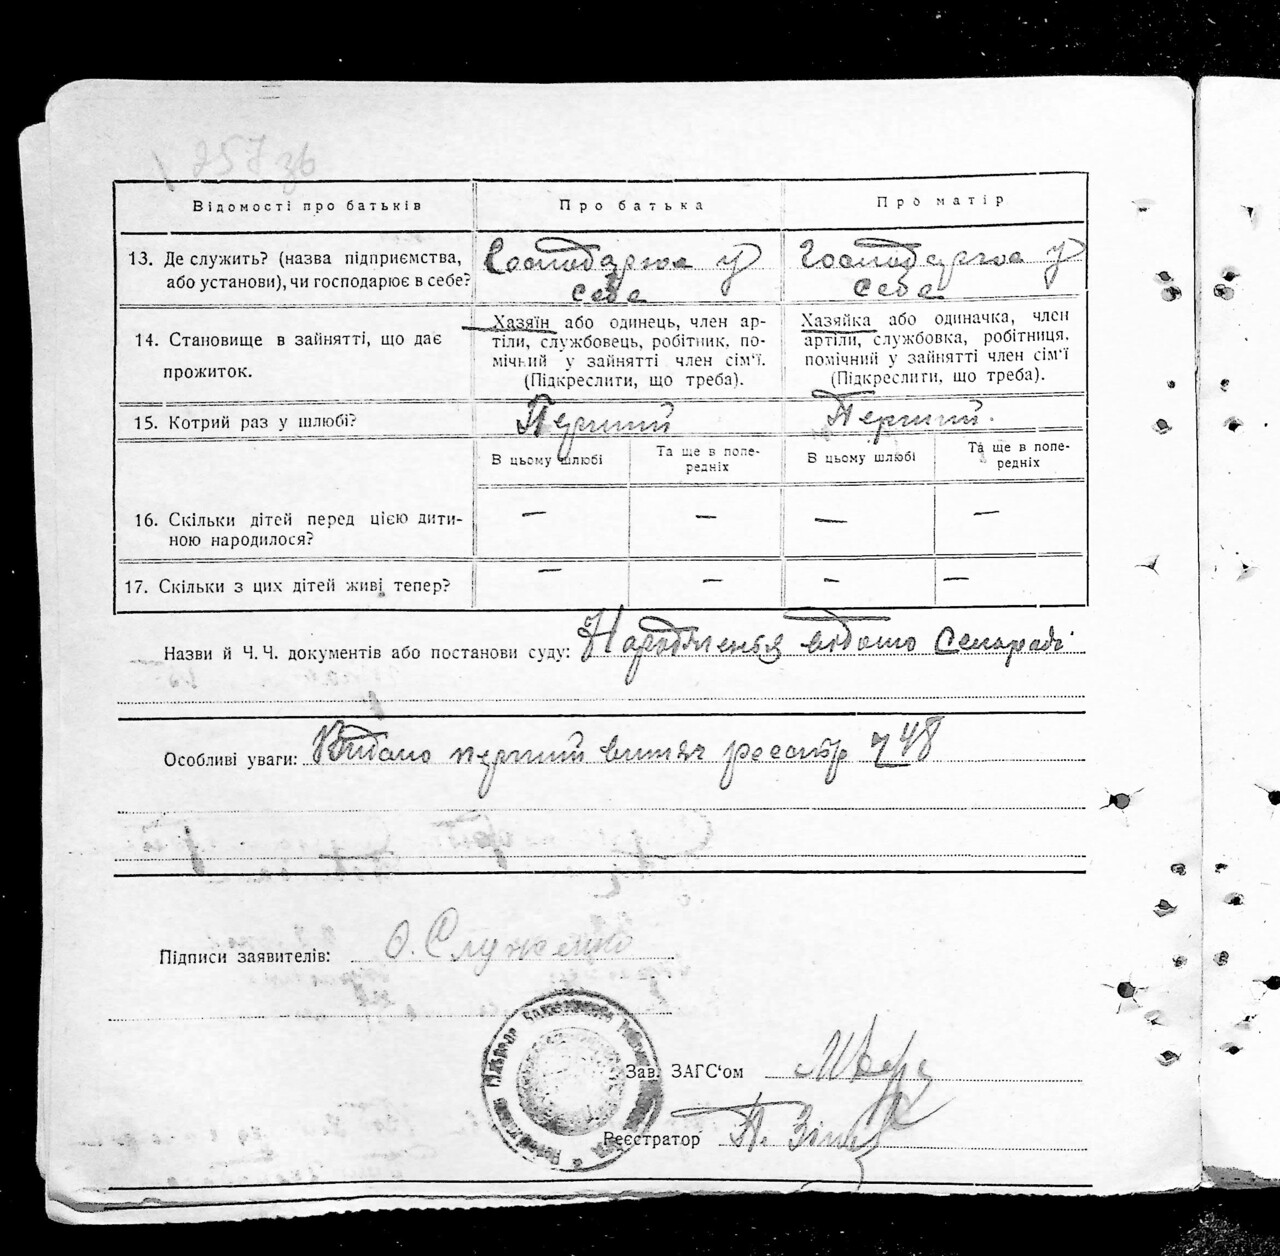 257 зв
Відомості про батьків
Про батька
Про матір
13. Де служить? (назва підприємства,
або установи), чи господарює в себе?
Господарює у
себе
Господарює у
себе
14. Становище в зайнятті, що дає
прожиток.
Хазяїн або одинець, член ар-
тіли, службовець, робітник, по-
мічний у зайнятті член сім'ї.
(Підкреслити, що треба).
Хазяйка або одиначка, член
артіли, службовка, робітниця,
помічний у зайнятті член сім'ї
(Підкреслити, що треба).
15. Котрий раз у шлюбі?
Перший
Перший.
В цьому шлюбі
Та ще в попе-
редніх
В цьому шлюбі
Та ще в попе-
редніх
16. Скільки дітей перед цією дити-
ною народилося?
— — — —
17. Скільки з цих дітей живі тепер?
— — — —
Назви й Ч.Ч. документів або постанови суду: Народження відомо Сельраді
Особливі уваги: Видано перший витяг реєстр 48
Підписи заявителів: О.
Зав. ЗАГС'ом
Реєстратор П.